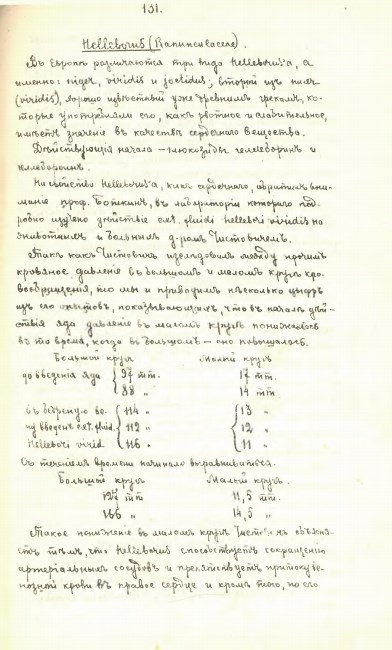 131.
Helleborus (Ranunculaceae).
Въ Европѣ различаются три вида Helleborus'а, а
именно: niger, viridis и foetidus; второй изъ нихъ
(viridis), хорошо извѣстный уже древнимъ грекамъ, ко-
торые употребляли его, какъ рвотное и слабительное,
имѣетъ значенiе въ качествѣ сердечнаго вещества.
Дѣйствующiя начала — глюкозиды геллеборинъ и
геллебореинъ.
На свойства Helleborus'а, какъ сердечнаго, обратилъ вни-
манiе проф. Боткинъ, въ лабораторiи котораго под-
робно изучено дѣйствiе ext. fluidi hellebori viridis на
животныхъ и больныхъ д-ромъ Чистовичемъ.
Такъ какъ Чистовичъ изслѣдовалъ между прочимъ
кровяное давленiе въ большомъ и маломъ кругѣ кро-
вообращенiя, то мы и приводимъ нѣсколько цифръ
изъ его опытовъ, показывающихъ, что въ началѣ дѣй-
ствiя яда давленiе въ маломъ кругѣ понижалось
въ то время, когда въ большомъ — оно повышалось.
Большой кругъ Малый кругъ
до введенiя яда { 97 mm. 17 mm.
88 „ 14 mm
въ бедреную ве- { 114 „ { 13 „
ну введенъ ext. fluid. 112 „ 12 „
Hellebori virid 116 „ 11 „
Съ теченiемъ времени начинало выравниваться.
Большой кругъ Малый кругъ.
127 mm 11,5 mm.
166 „ 14,5 „
Такое пониженiе въ маломъ кругѣ Чистовичъ объясня-
етъ тѣмъ, что Helleborus способствуетъ сокращенiю
артерiальныхъ сосудовъ и препятствуетъ притоку ве-
нозной крови въ правое сердце и кромѣ того, по его